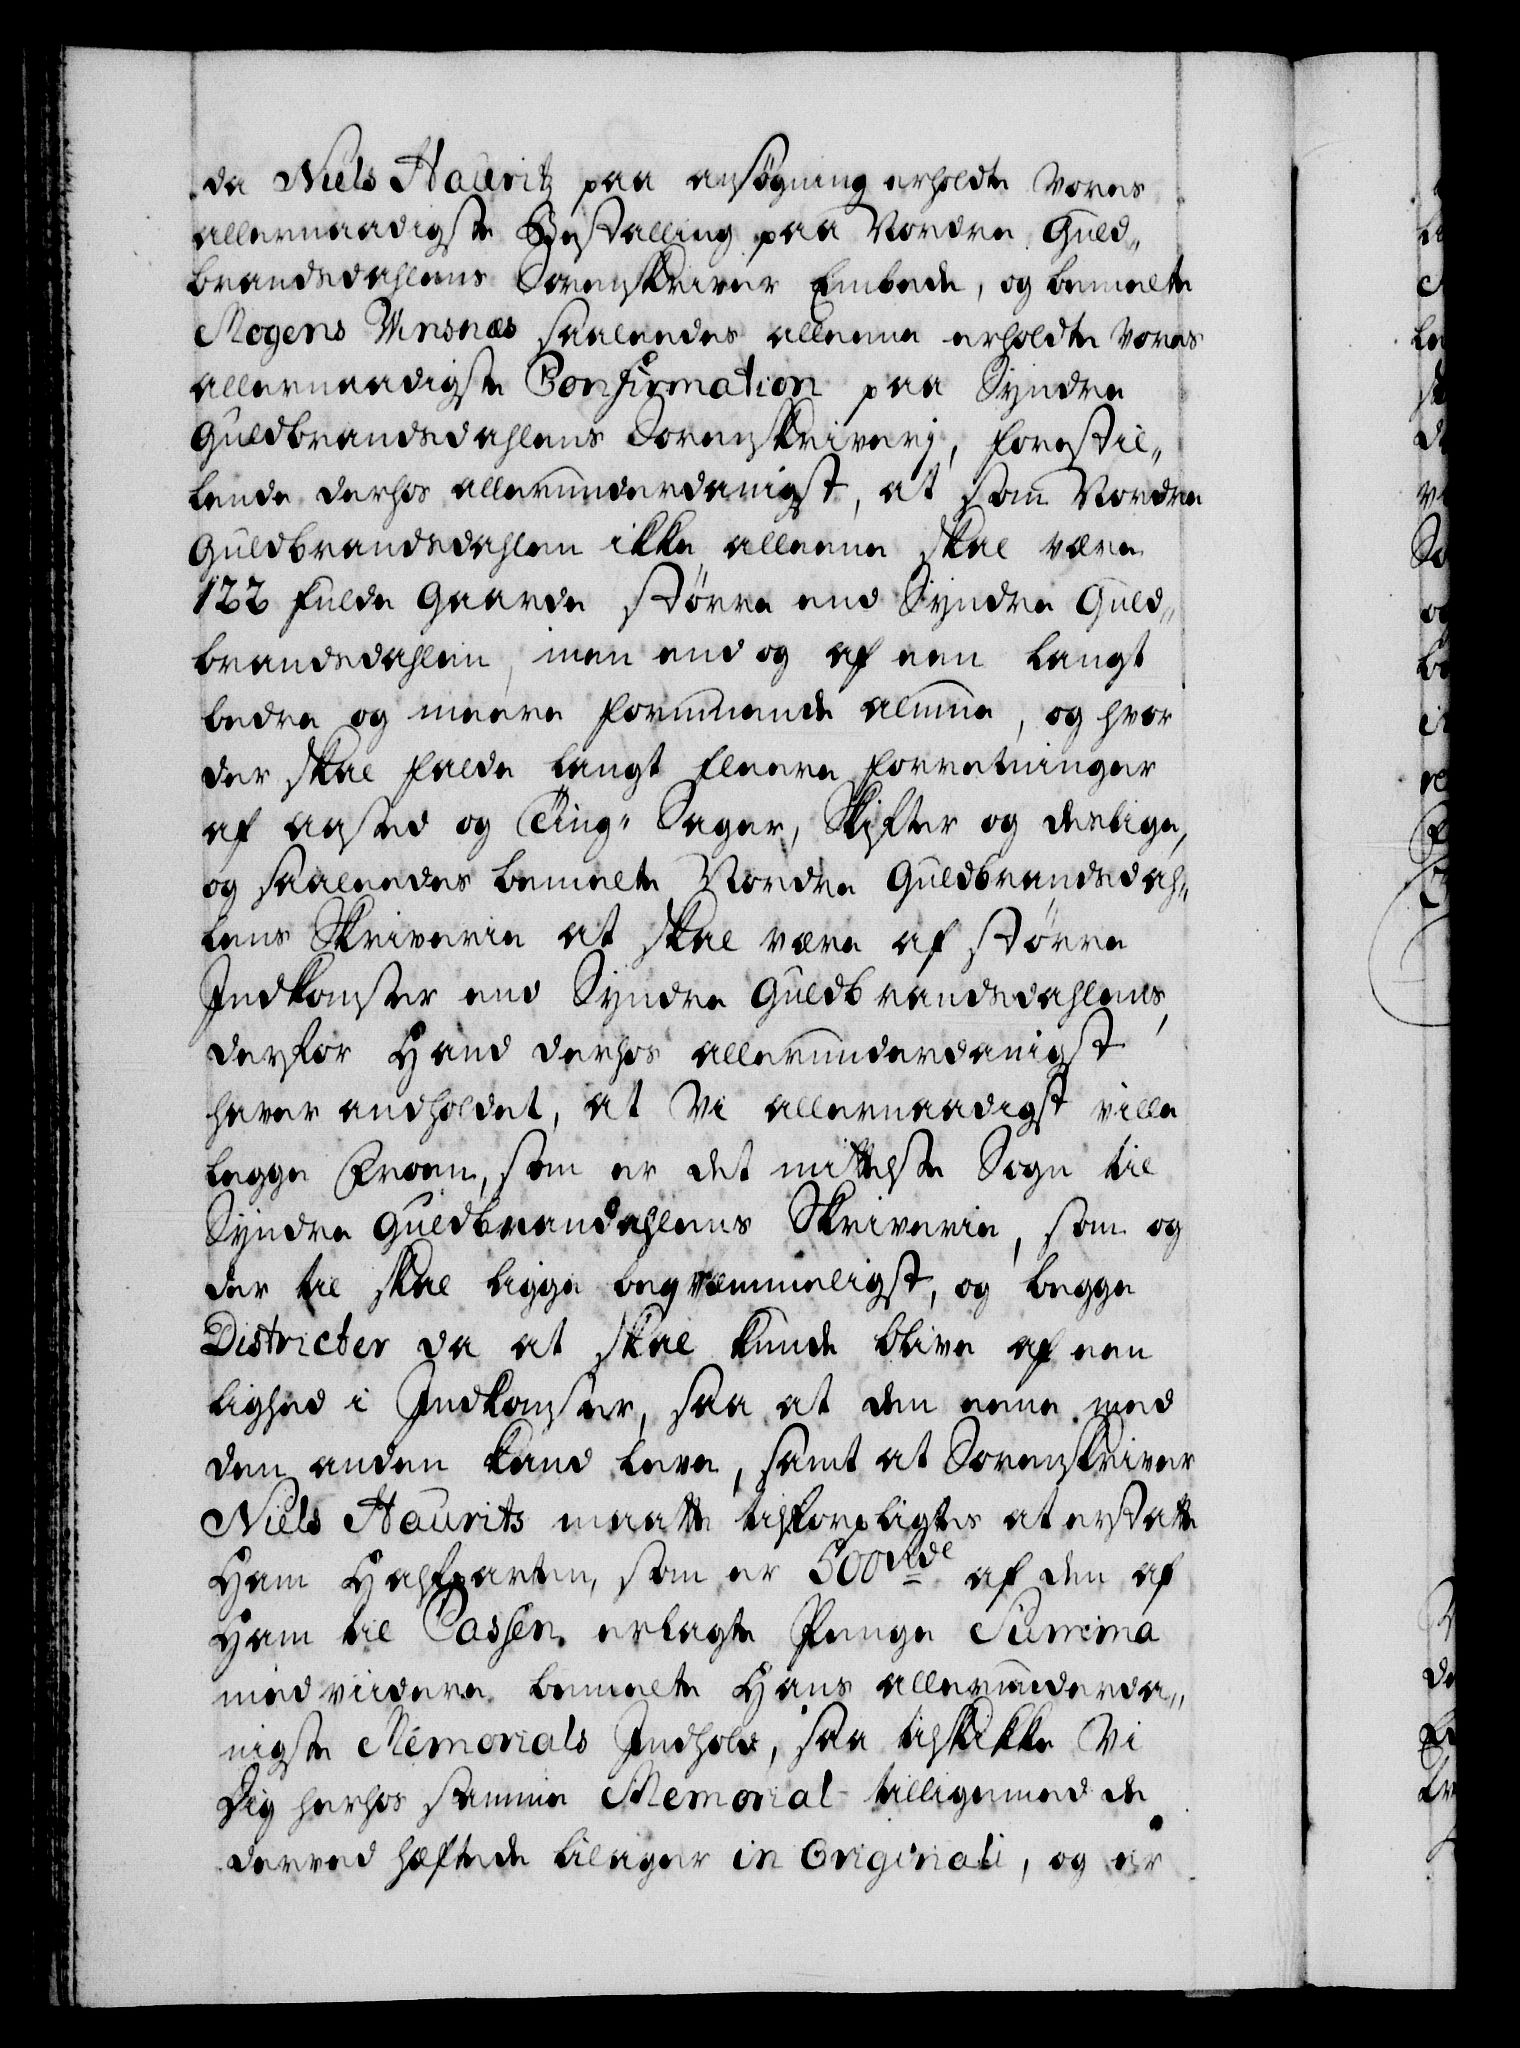 da Niels Hauritz paa ansøgning erholdte Vores
allernaadigste Bestalling paa Nordre Guld„
brandsdahlens Sorenskriver Embede, og bemelte
Mogens Winsnæs saaleedes alleene erholdte Vores
allernaadigste Confirmation paa Syndre
Guldbrandsdahlens Sorenskriverj, forestil„
lende derhos allerunderdanigst, at som Nordre
Guldbrandsdahlen ikke alleene skal være
122 fulde Gaarde större end Syndre Guld„
brandsdahlen, men end og af een langt
bedre og meere formuende almue, og hvor
der skal falde langt fleere forretninger
af aasted og Ting- Sager, Skifter og deslige,
og saaleedes bemelte Nordre Guldbrandsdah„
lens Skriverie at skal være af större
Indkomster end Syndre Guldbrandsdahlens,
derfor Hand derhos allerunderdanigst
haver andholdet, at Vi allernaadigst ville
legge Froen, som er det mittelste Sogn til
Syndre Guldbrandahlens Skriverie, som og
der til skal ligge beqvemmeligst, og begge
Districter da at skal kunde blive af een
lighed i Indkomster, saa at den eene med
den anden kand leve, samt at Sorenskriver
Niels Haurits maatte tilforpligtes at erstatte
Ham Halfparten, som er 500 Rdl af den af
Ham til Cassen erlagte Penge Summa
med viidere bemelte Hans allerunderda„
nigste Memorials Indhold, saa tilskikke Vi
Dig herhos samme Memorial tilligemed de
derved hæftede bilager in Originali, og er